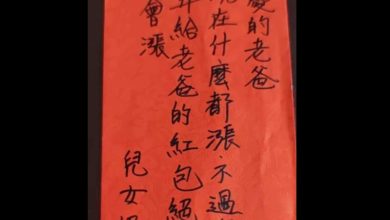 愛的老爸
現在什麼都漲不過
年給老爸的紅包絕
會漲
兒女